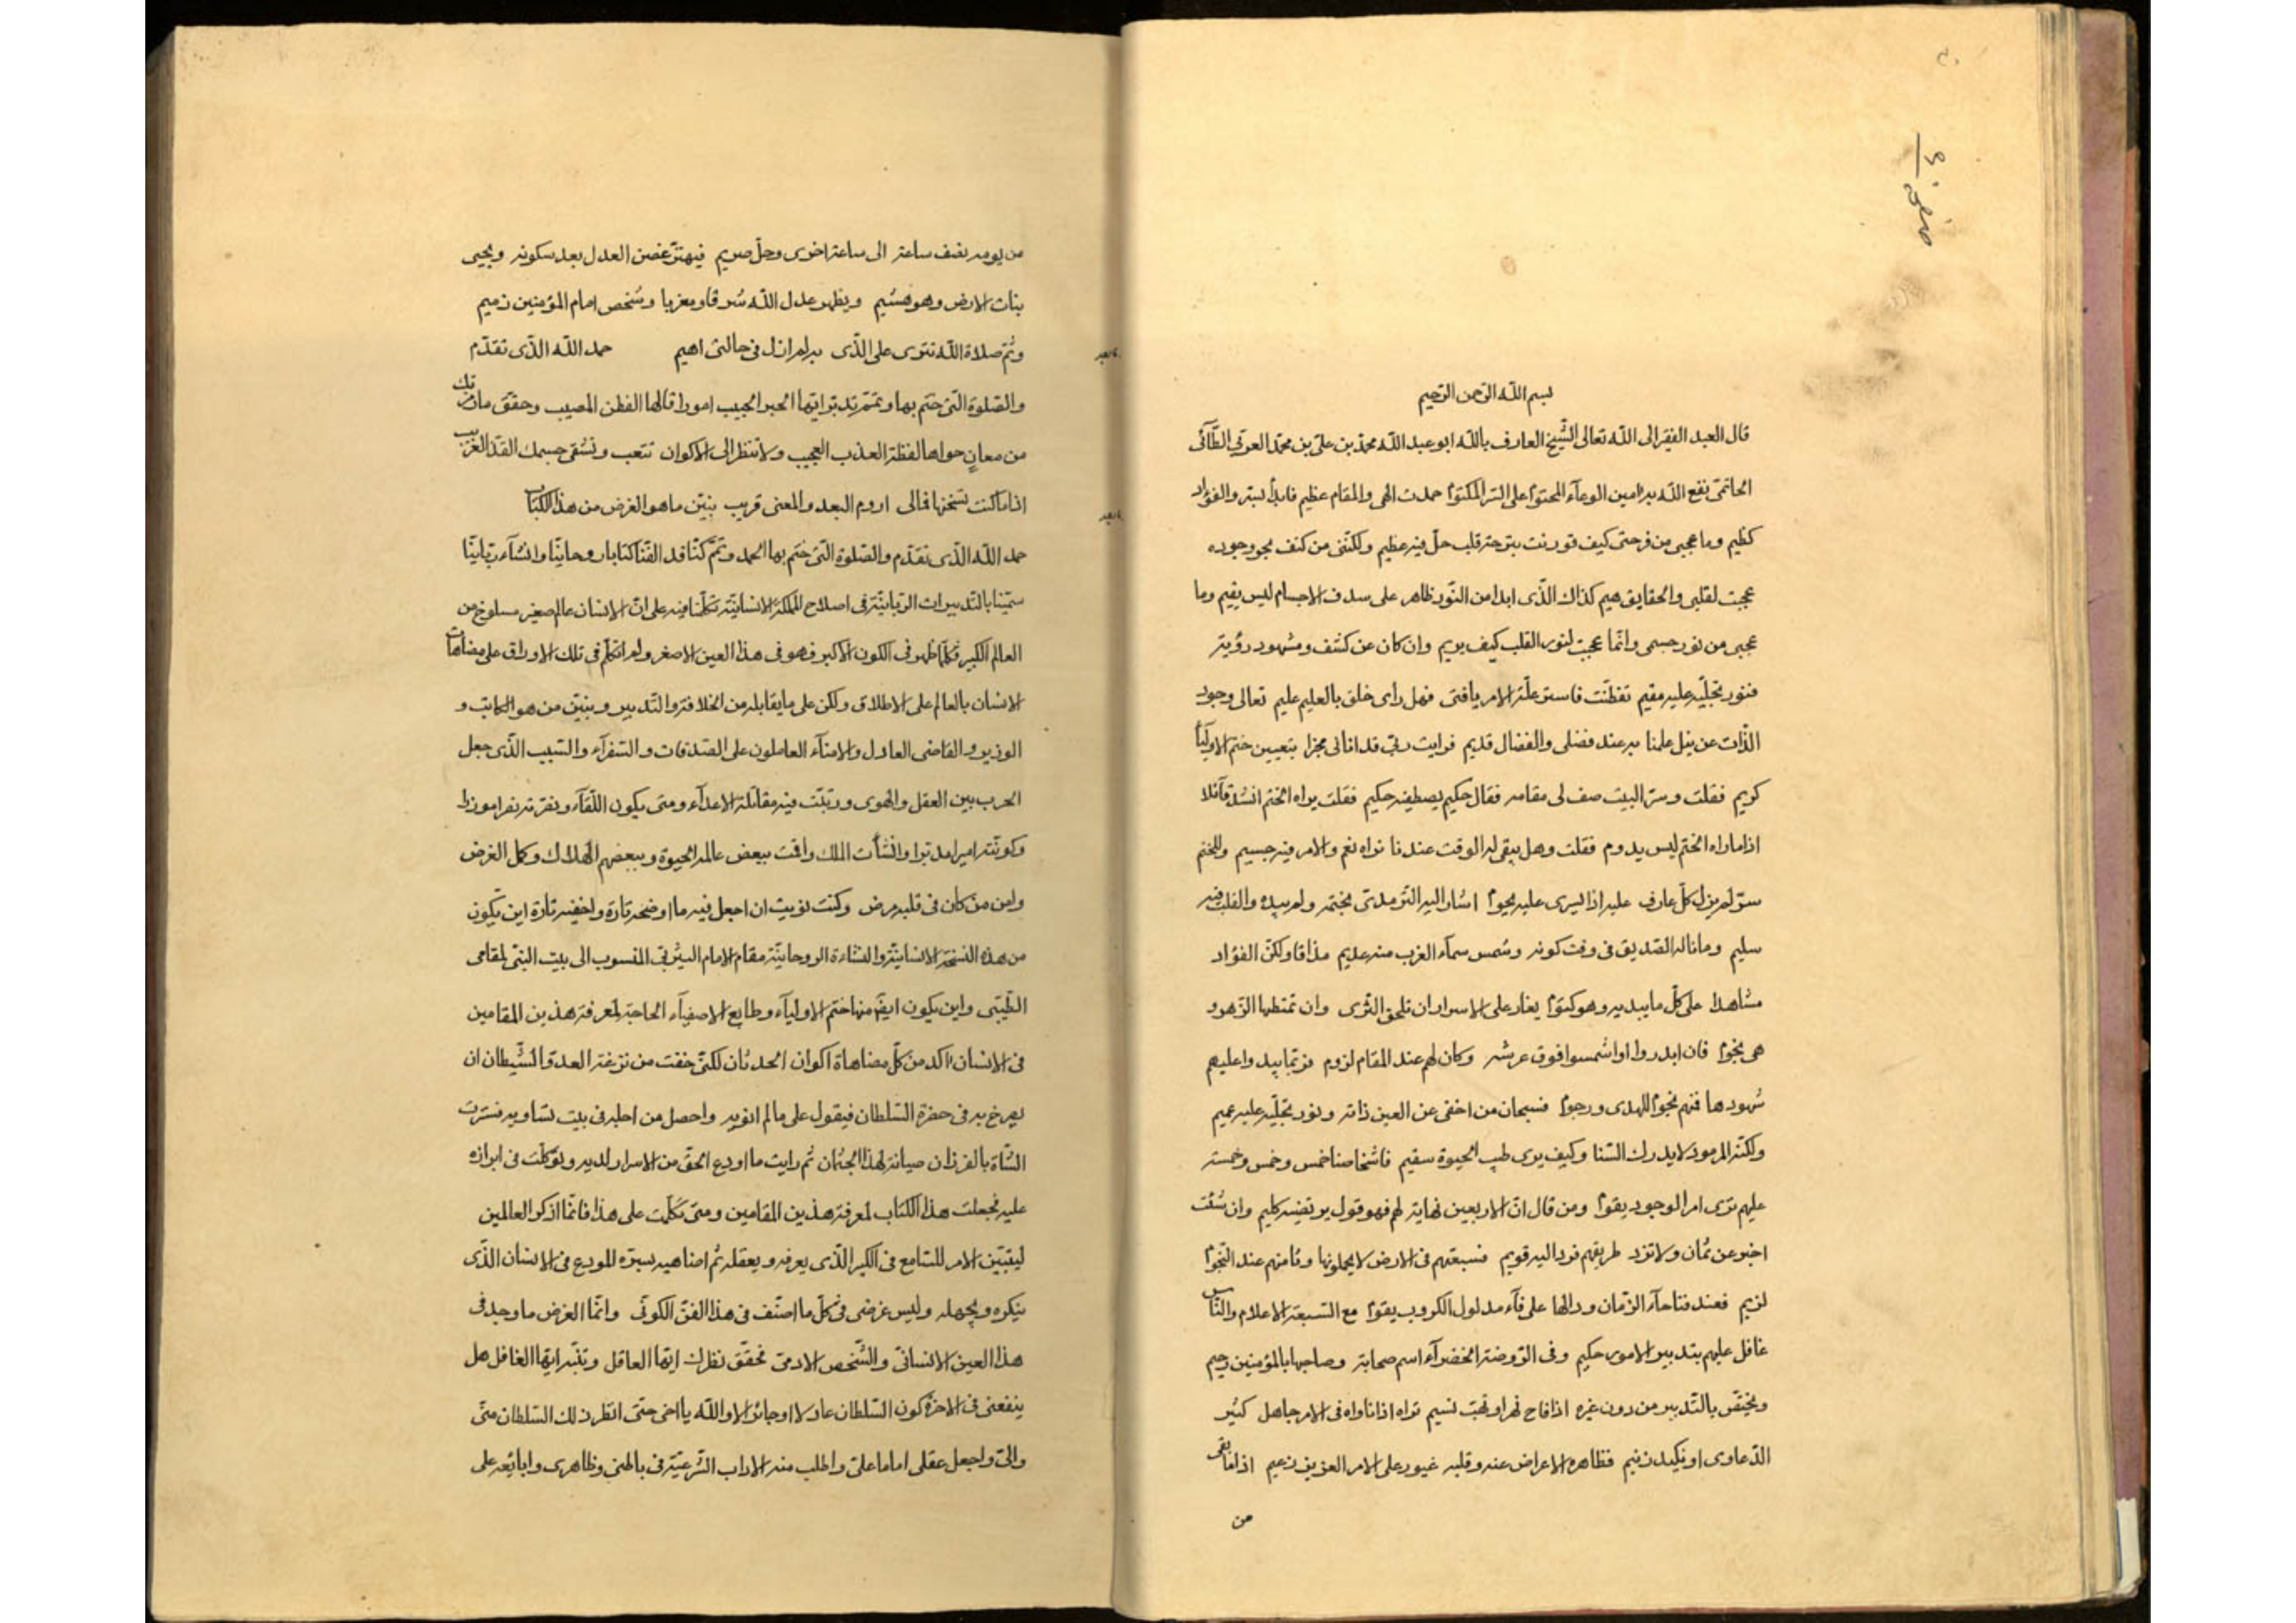 بسم الله الرحمن الرحيم
قال العبد الفقير الى الله تعالى الشيخ العارف بالله ابو عبد الله محمد بن على بن محمد العربي الطآئى
الحاتمى نفع الله به امين الوعآء المحتوم على السر المكتوم حمدت الهى والمقام عظيم فابدأ بسر والفؤاد
كظيم وما عجبى من فرحتى كيف قورنت بترحة قلب حل فيه عظيم ولكننى من كنف بحر وجوده
عجبت لقلبى والحقايق هيم كذاك الذى ابدا من النور ظاهر على سدف الاجسام ليس يقيم وما
عجبى من نور جسمى وانما عجبت لنور القلب كيف يريم وان كان عن كشف ومشهود رؤية
فنور تجليه عليه مقيم تفطنت فاستر علة الامر يافتى فهل رأى خلق بالعليم عليم تعالى وجود
الذات عن نيل علمنا به عند فضلى والفضال قديم فرايت ربى قد اتانى مخبرا بتعيين ختم الاوليآء
كريم فقلت وسر البيت صف لى مقامه فقال حكيم يصطفيه حكيم فقلت يراه الختم اشتد قآئلا
اذا ماراه الختم ليس يدوم فقلت وهل يبقى له الوقت عندنا نراه نعم والامر فيه جسيم وللختم
سر لم يزل كل عارف عليه اذا يسرى عليه يحوم اشار اليه الترمدى بختمه ولم يبده والقلب فيه
سليم وماناله الصديق فى وقت كونه وشمس سمآء الغرب منه عديم مذاقا ولكن الفؤاد
مشاهدا على كل مايبديه وهو كتوم يغار على الاسرار ان تلحق الثرى وان تمتطيها الزهر و
هى نجوم فان ابدروا او اشمسوا فوق عرشه وكان لهم عند المقام لزوم فربما يبدوا عليهم
شهودها فمنهم نجوم للهدى ورجوم فسبحان من اخفى عن العين ذاته ونور تجليه عليه عميم
ولكنه المرموز لايدرك السنا وكيف يرى طيب الحيوة سقيم فاشخاصنا خمس وخمس وخمسة
عليهم ترى امر الوجود يقوم ومن قال ان الاربعين نهاية لهم فهو قول يرتضيه كليم وان شئت
اخبر عن ثمان ولاتزد طريقهم فرد اليه قويم فسبعتهم فى الارض لايجهلونها وثامنهم عند النجوم
لزيم فعند فنا خآء الزمان ودالها على فآء مدلول الكروب يقوم مع السبعة الاعلام والناس
غافل عليهم بتدبير الامور حكيم وفى الروضة الخضرآء اسم صحابة وصاحبها بالمؤمنين رحيم
ويختص بالتدبير من دون غيره اذا فاح زهر او نهب نسيم تراه اذا ناواه فى الامر جاهل كثير
الدعاوى او يكيد زنيم فظاهره الاعراض عنه وقلبه غيور على الامر العزيز زعيم اذا مابقى
من
من يومه نصف ساعة الى ساعة اخرى وحل صريم فيهتز غصن العدل بعد سكونه ويحيى
بنات الارض وهو هشيم ويظهر عدل الله شرقا ومغربا وشخص امام المؤمنين رميم
وثم صلاة الله تترى على الذى به لم ازل فى حالتى اهيم حمد الله الذى تقدم
والصلوة التى ختم بها وتمتم تدبر ايها الحبر الحبيب امورا قالها الفطن المصيب وحقق مارمت
من معان حواها لفظة العذب العجيب ولاتنظر الى الاكوان تتعب وتشقى جسمك الفذ الغريب
اذا ماكنت نسختها فمالى اروم البعد والمعنى قريب بنيتن ماهو الغرض من هذا الكتاب
حمد الله الذى تقدم والصلوة التى ختم بها الحمد وتمم كنا قد الفنا كتابا روحانيا وانشآء ربانيا
سميناه بالتدبيرات الربانية فى اصلاح المملكة الانسانية تكلمنا فيه على ان الانسان عالم صغير مسلوخ من
العالم الكبير فكلما ظهر فى الكون الاكبر فهو فى هذا العين الاصغر ولم اتكلم فى تلك الاوراق على مضاهات
الانسان بالعالم على الاطلاق ولكن على مايقابله من الخلافة والتدبير وبينت من هو الكاتب و
الوزير والقاضى العادل والامنآء العاملون على الصدقات والسفرآء والسبب الذى جعل
الحرب بين العقل والهوى ورتبت فيه مقابلة الاعدآء ومتى يكون اللقآء ونصرته نصرا مؤزرا
وكونته اميرا مدبرا وانشأت الملك واقمت ببعض عالمه الحيوة وببعضهم الهلاك وكمل الغرض
وامن من كان فى قلبه مرض وكنت نويت ان اجعل فيه ما اوضحه تارة واخفيه تارة اين يكون
من هذه النسخة الانسانية والنشاءة الروحانية مقام الامام المهدى المنسوب الى بيت النبى المقامى
الطينى واين يكون ايضا منها ختم الاوليآء وطابع الاصفيآء الحاجة لمعرفة هذين المقامين
فى الانسان اكد من كل مضاهاة اكوان الحدثان لكنى خفت من نزغة العدو الشيطان ان
يصرخ به فى حضرة السلطان فيقول على مالم انويه واحصل من اجله فى بيت تشاويه فسترت
الشاة بالفرزان صيانة لهذا الجثمان ثم رايت ما اودع الحق من الاسرار لديه وتوكلت فى ابرازه
عليه فجعلت هذا الكتاب لمعرفة هذين المقامين ومتى تكلمت على هذا فانما اذكر العالمين
ليتبين الامر للسامع فى الكبير الذى يعرفه ويعقله ثم اضاهيه بسره المودع فى الانسان الذى
ينكره ويجهله وليس غرضى فى كل ما اصنف فى هذا الفن الكونى وانما الغرض ماوجد فى
هذا العين الانسانى والشخص الادمى فحقق نظرك ايها العاقل وتنبه ايها الغافل هل
ينفعنى فى الاخرة كون السلطان عادلا او جائرا لاوالله يا اخى حتى انظر ذلك السلطان منى
والى واجعل عقلى اماما على واطلب منه الاداب الشرعية فى باطنى وظاهرى وابايعه على